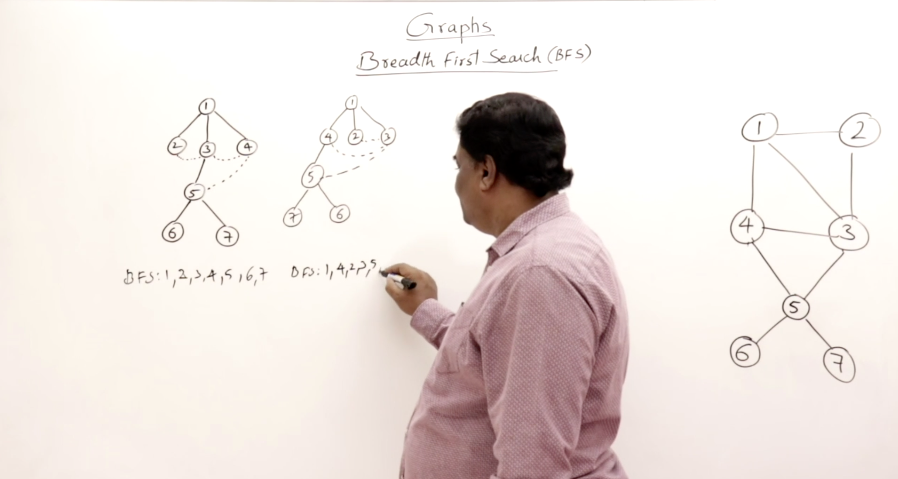 Graphs
Breadth First Search (BFS)
1
2 3 4
5
6 7
BFS: 1, 2, 3, 4, 5, 6, 7
1
4 2 3
5
7 6
BFS: 1, 4, 2, 3, 5,
1 2
4 3
5
6 7